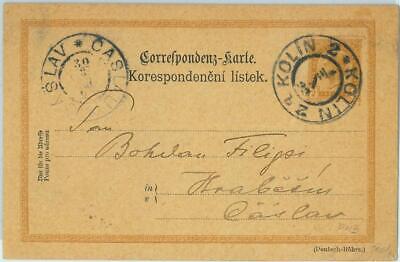 ČÁSLAV * ČASLAU
30
KOLÍN 2 * KOLIN 2
Correspondenz-Karte.
Korespondenční lístek.
Nur für die Adresse
Pouze pro adresu.
Pan
Bohdan Filipi
in
v
Hraběšín
Čáslav
(Deutsch-Böhm.)